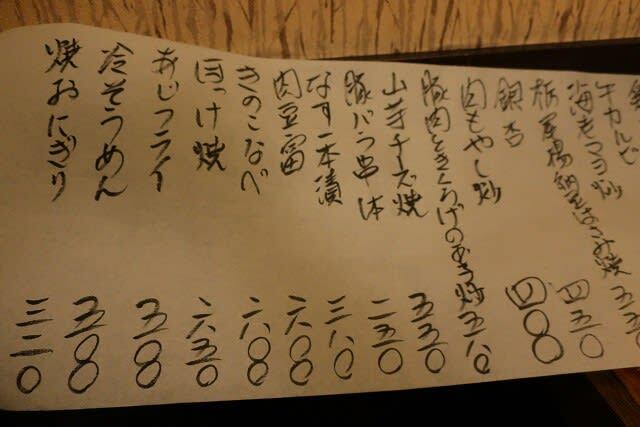 牛カルビ
海老マヨ炒
栃尾揚納豆はさみ焼 五五
銀杏 四五〇
肉もやし炒 四〇〇
豚肉ときくらげの玉子炒 五八〇
山芋チーズ焼 五五〇
豚バラ串一本 二五〇
なす一本漬 三八〇
肉豆富 六八〇
きのこなべ 六八〇
ほっけ焼 六五〇
あじフライ 五〇〇
冷そうめん 五〇〇
焼おにぎり 三二〇